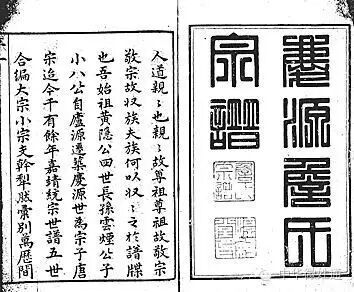 慶源詹氏
宗譜
人道親〻也親〻故尊祖尊祖故敬宗
敬宗故収族夫族何以収〻之於譜牒
也吾始祖黃隱公四世長孫雲煙公子
小八公自廬源遷慶源世為宗子唐
宗迄今千有餘年嘉靖統宗世譜五世
合編大宗小宗支幹犁然彙別萬歷間